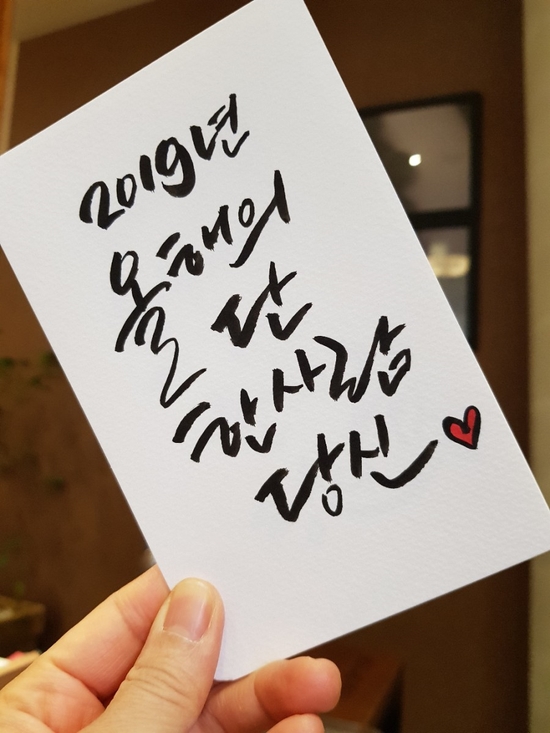 2019년
올해의
단
한사람
당신